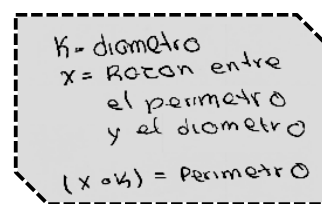 K = diametro
x = Razon entre
el perimetro
y el diametro
(x ∘ K) = Perimetro